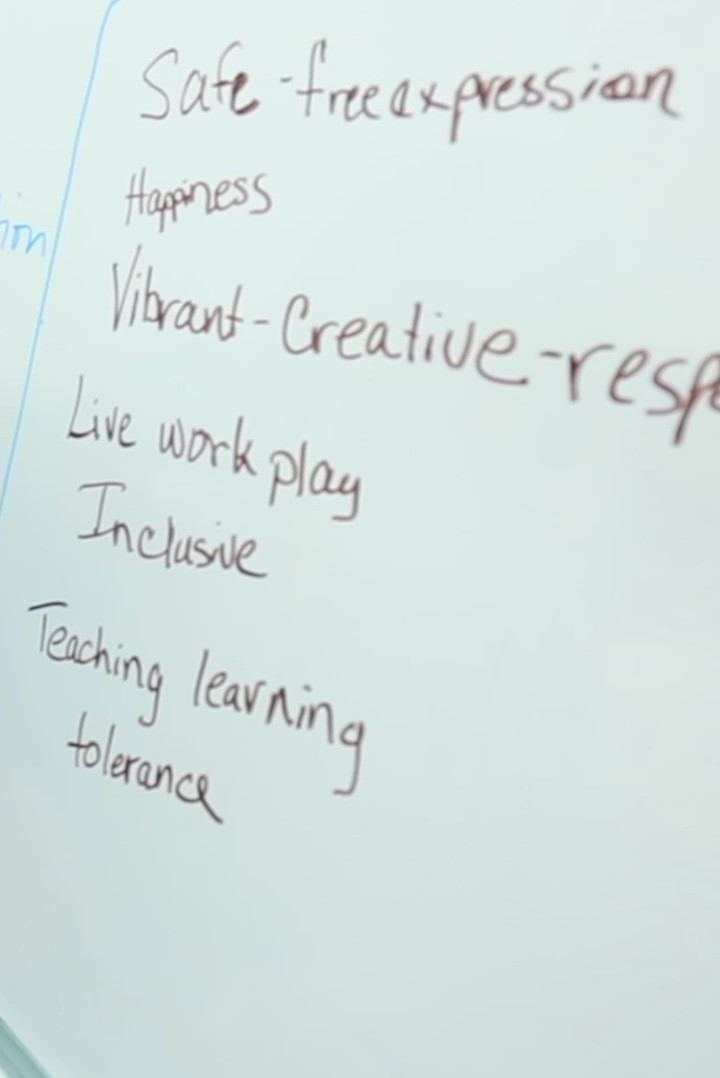 Safe - free expression
Happiness
Vibrant - Creative - resp
Live work play
Inclusive
Teaching learning
tolerance